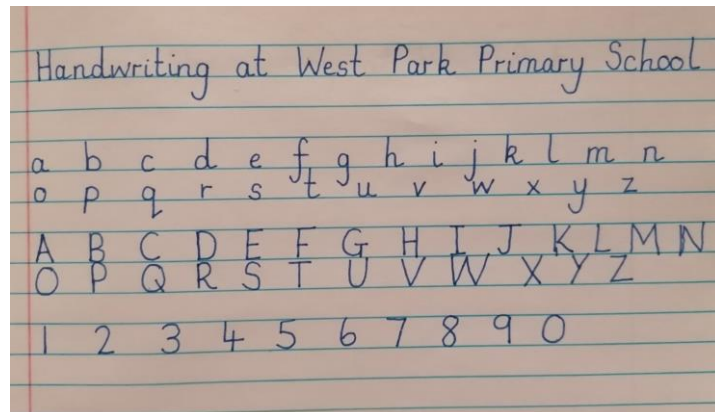 Handwriting at West Park Primary School
a b c d e f g h i j k l m n
o p q r s t u v w x y z
A B C D E F G H I J K L M N
O P Q R S T U V W X Y Z
1 2 3 4 5 6 7 8 9 0